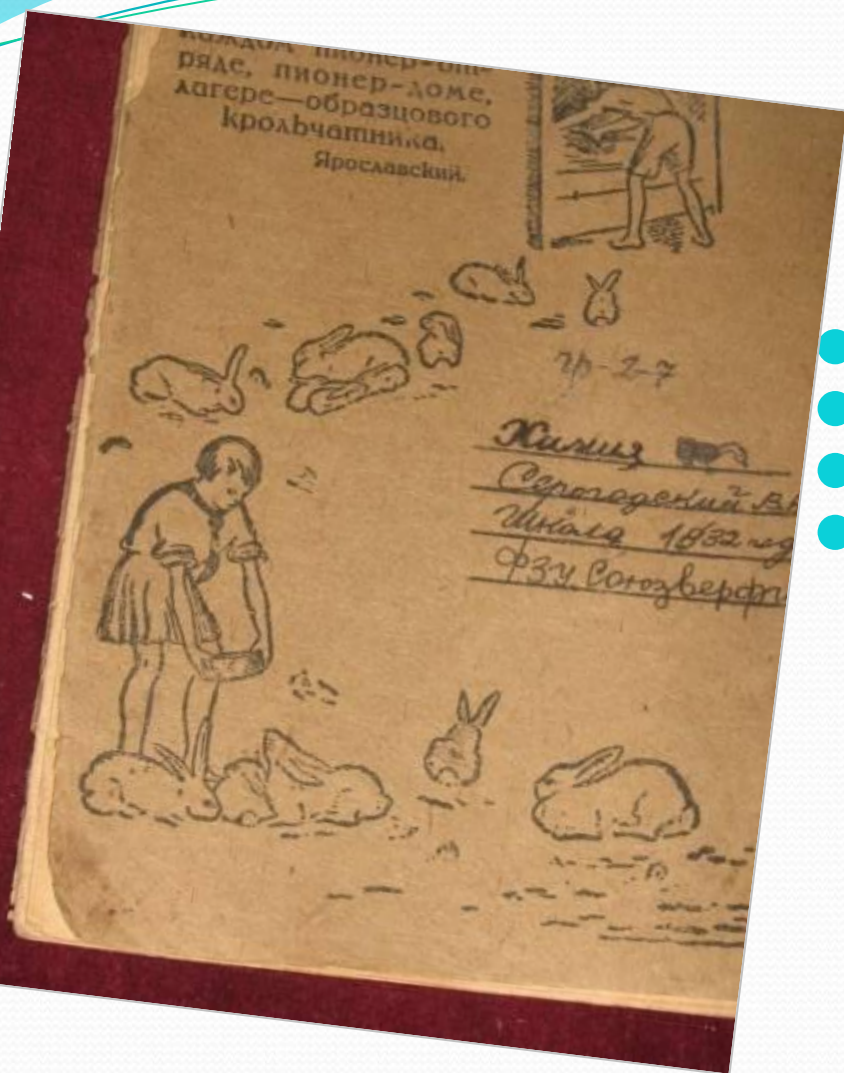 каждом пионер-от-
ряде, пионер-доме,
лагере—образцового
крольчатника.
Ярославский.
гр-2-7
Химия
Серогодский В
Школа 1932 год
ФЗУ Союзверфи